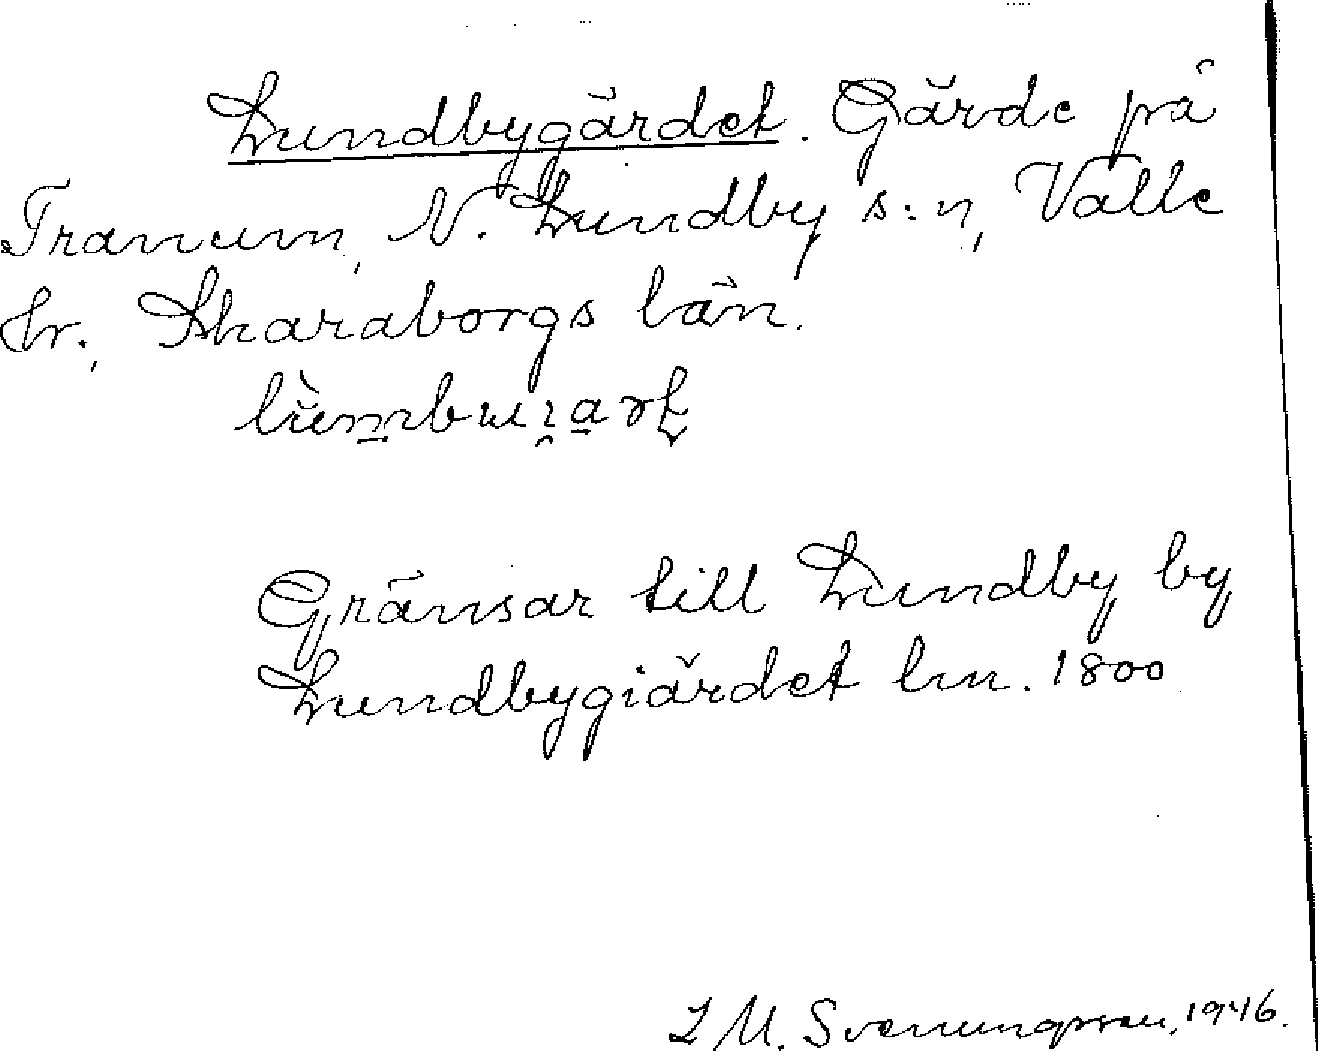 Lundbygärdet. Gärde på
Tranum, N. Lundby s:n, Valle
hr., Skaraborgs län.
Gränsar till Lundby by
Lundbygiärdet lm. 1800
1946.